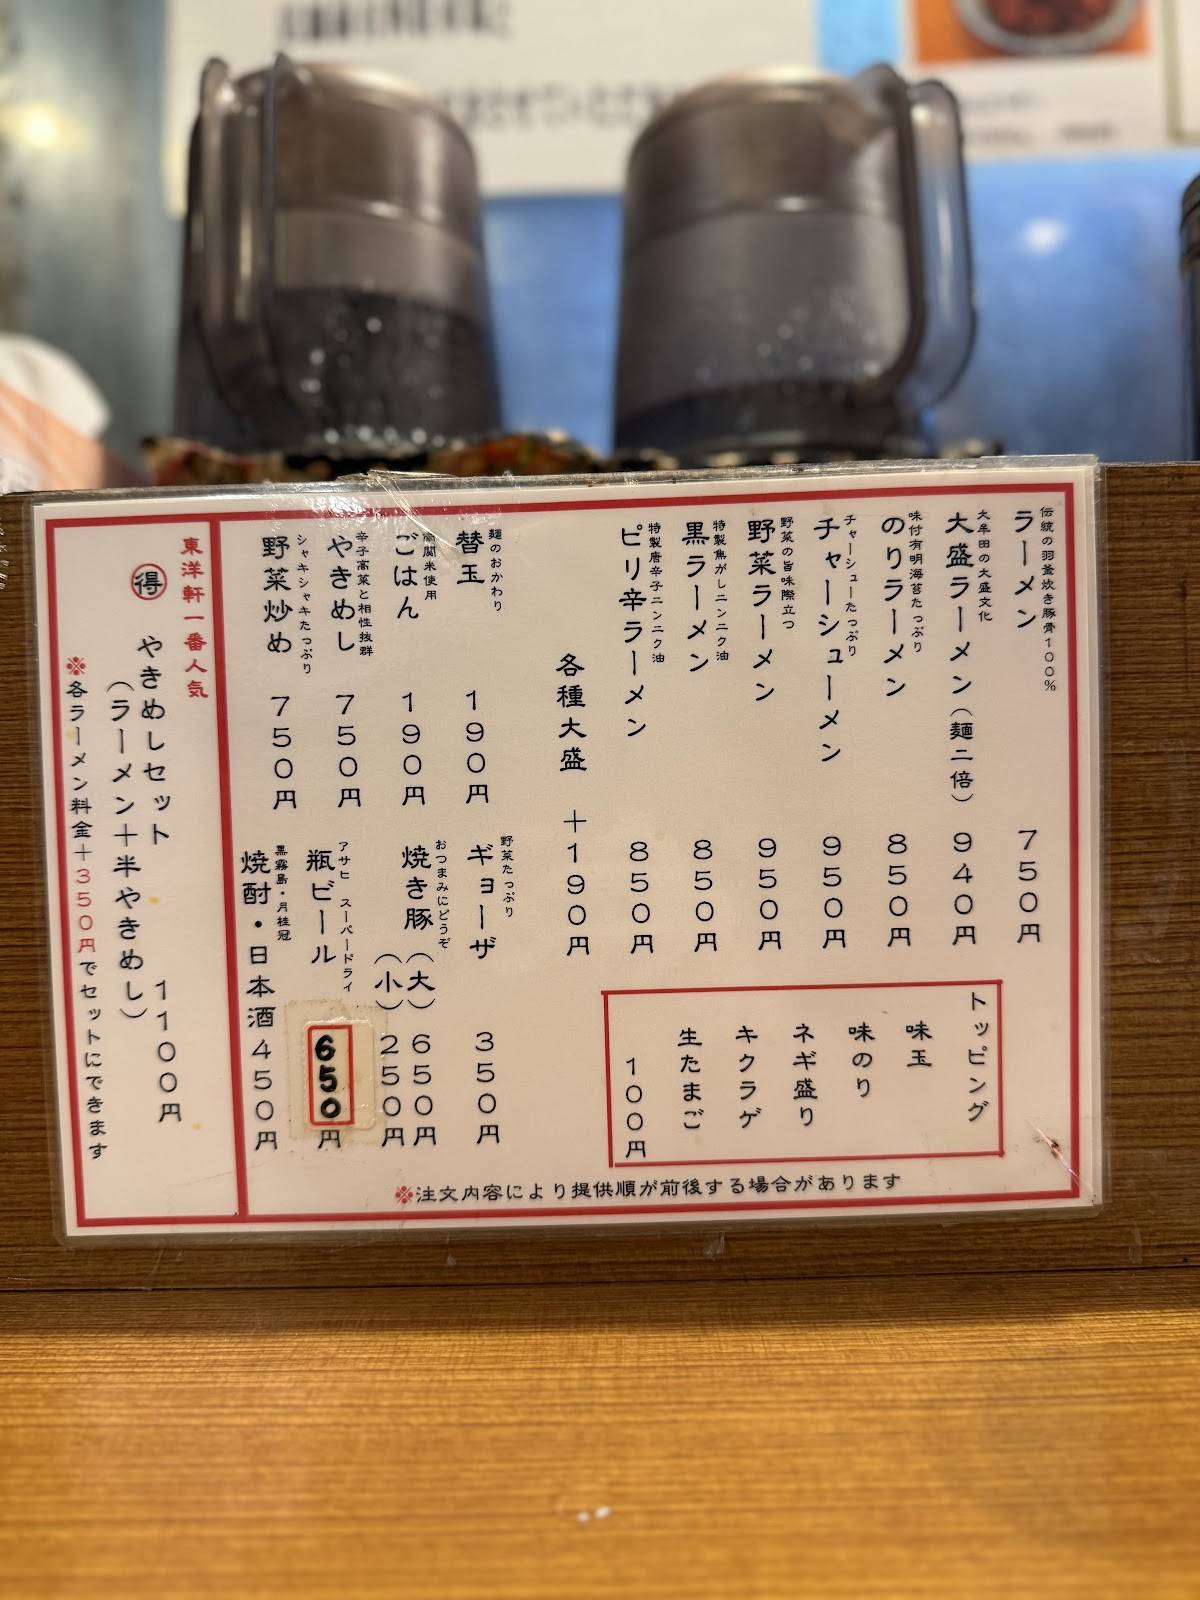 伝統の羽釜炊き豚骨100%
ラーメン 750円
大牟田の大盛文化
大盛ラーメン(麺二倍) 940円
味付有明海苔たっぷり
のりラーメン 850円
チャーシューたっぷり
チャーシューメン 950円
野菜の旨味際立つ
野菜ラーメン 950円
特製焦がしニンニク油
黒ラーメン 850円
特製唐辛子ニンニク油
ピリ辛ラーメン 850円
各種大盛 +190円
トッピング
味玉
味のり
ネギ盛り
キクラゲ
生たまご
100円
麺のおかわり
替玉 190円
米使用
ごはん 190円
辛子高菜と相性抜群
やきめし 750円
シャキシャキたっぷり
野菜炒め 750円
野菜たっぷり
ギョーザ 350円
おつまみにどうぞ
焼き豚(大)650円
(小)250円
アサヒ スーパードライ
瓶ビール 650円
黒霧島・月桂冠
焼酎・日本酒 450円
東洋軒一番人気
得 やきめしセット 1100円
(ラーメン+半やきめし)
※各ラーメン料金+350円でセットにできます
※注文内容により提供順が前後する場合があります